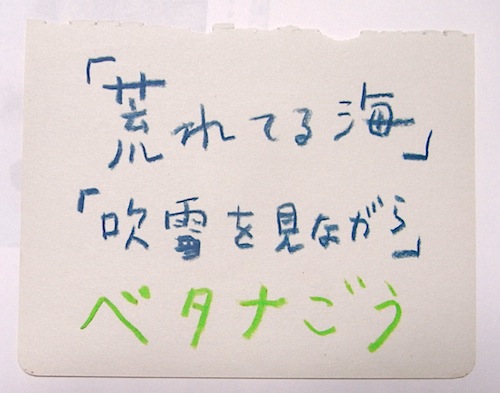 「荒れてる海」
「吹雪を見ながら」
ベタナごう